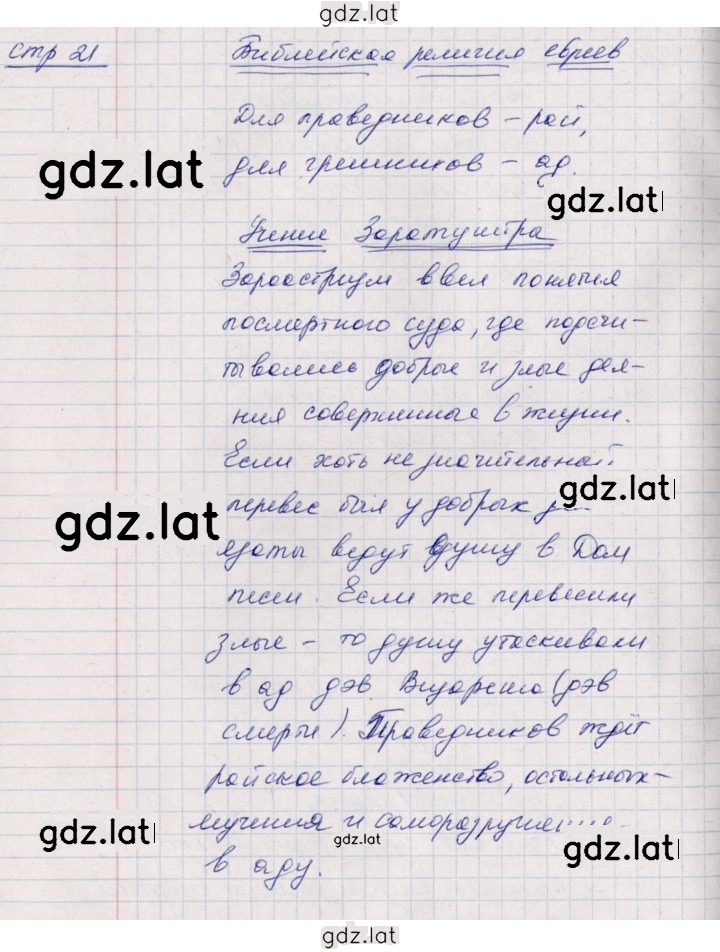 gdz.lat
стр 21 Библейская религия евреев
Для праведников – рай,
gdz.lat
для грешников – ад.
gdz.lat
Учение Заратуштра
Зороастризм ввел понятия
посмертного суда, где подсчи-
тывались добрые и злые дея-
ния совершинные в жизни.
Если хоть незначительной
gdz.lat
перевес был у добрых
gdz.lat
язаты ведут душу в Дом
песен. Если же перевесили
злые – то душу утаскивали
в ад дэв Визареша (дэв
смерти). Праведников ждёт
райское блаженство, остальных–
мучения и саморазрушен
gdz.lat
gdz.lat
gdz.lat
в аду.
gdz.lat